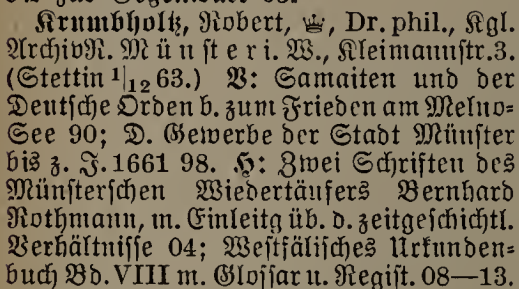 Krumbholtz, Robert, ♕, Dr. phil., Kgl.
ArchivR. Münster i. W., Kleimannstr. 3.
(Stettin 1/12 63.) V: Samaiten und der
Deutsche Orden b. zum Frieden am Melno-
See 90; D. Gewerbe der Stadt Münster
bis z. J. 1661 98. H: Zwei Schriften des
Münsterschen Wiedertäufers Bernhard
Rothmann, m. Einleitg üb. d. zeitgeschichtl.
Verhältnisse 04; Westfälisches Urkunden-
buch Bd. VIII m. Glossar u. Regist. 08—13.